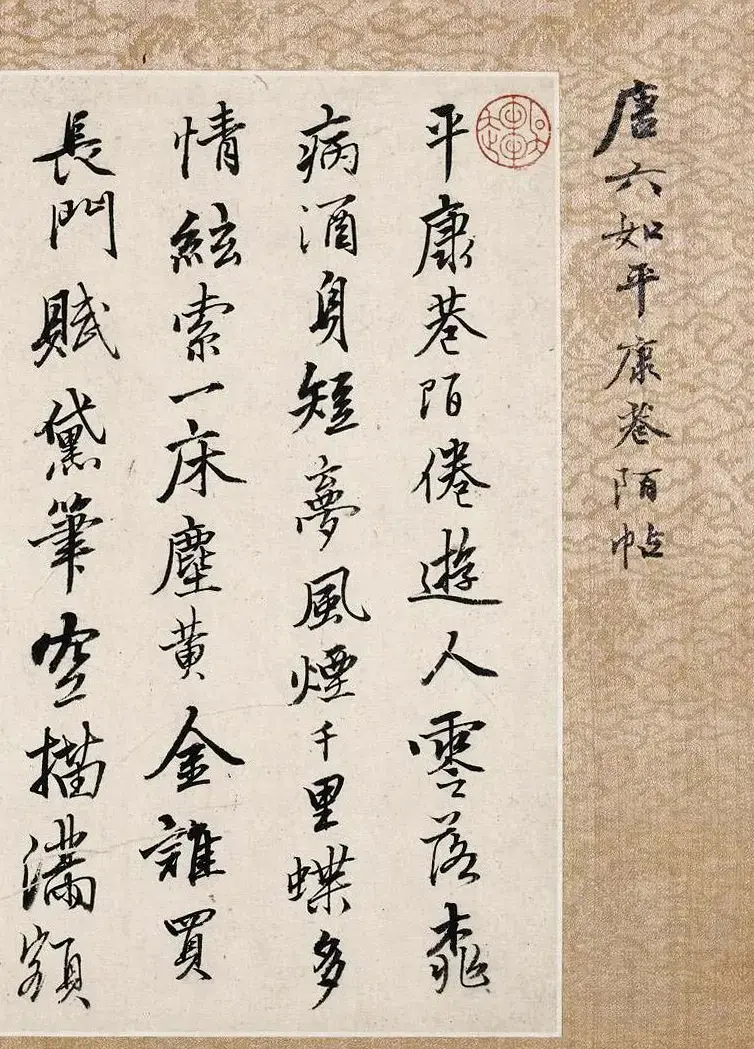 唐六如平康巷陌帖
平康巷陌倦遊人零落桃
病酒身短夢風煙千里蝶多
情絃索一床塵黃金誰買
長門賦黛筆空描滿額